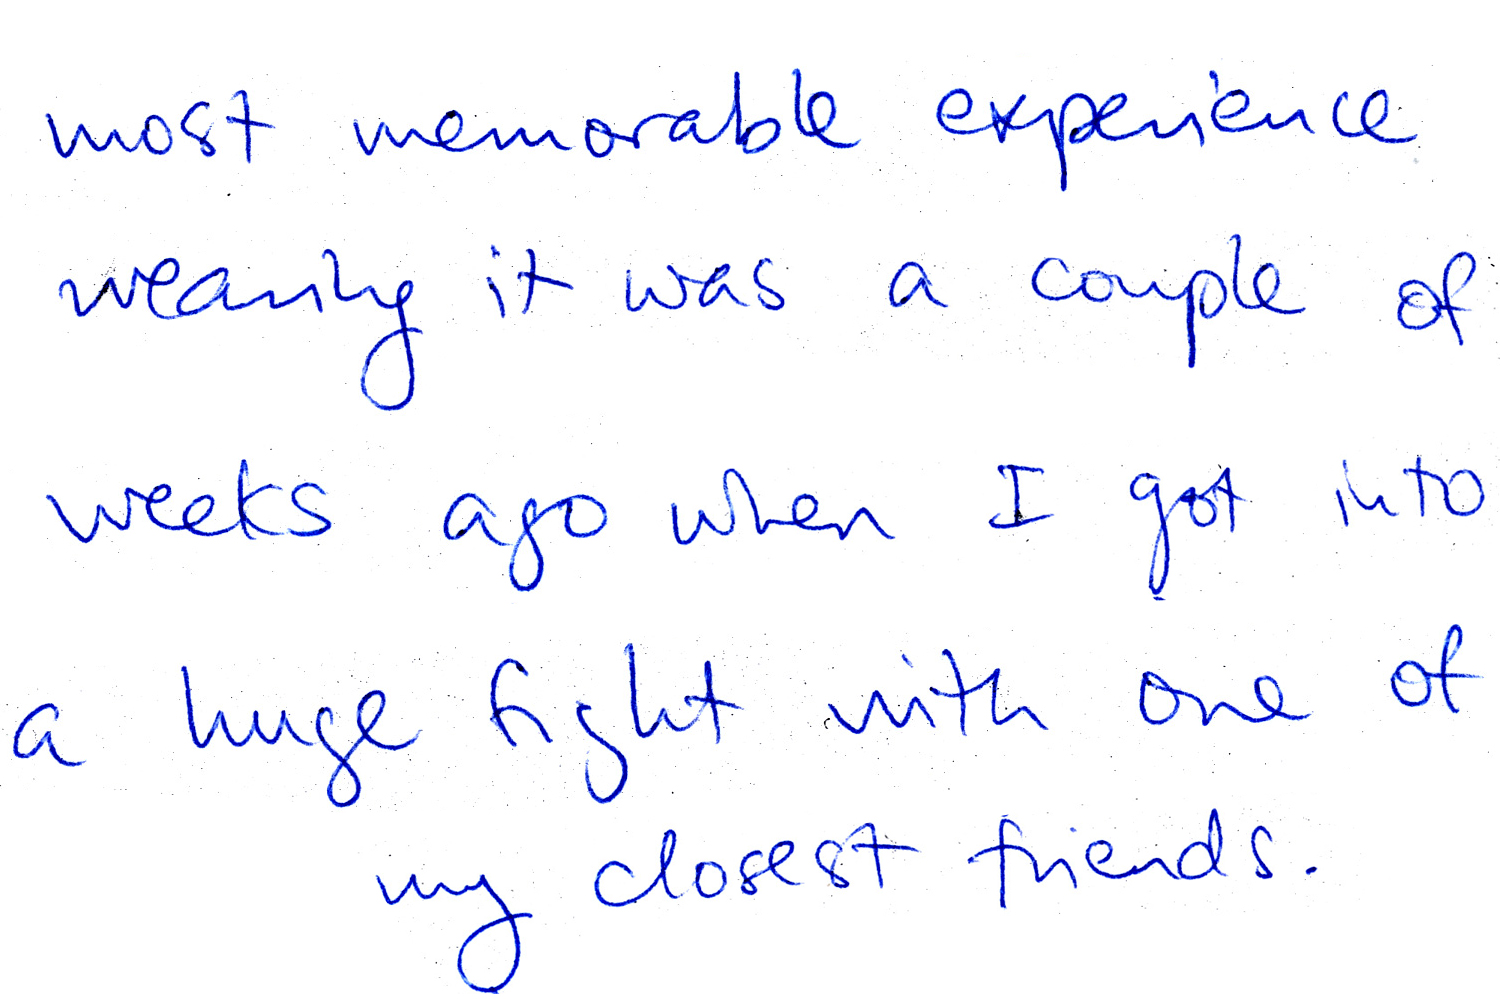 most memorable experience
wearing it was a couple of
weeks ago when I got into
a huge fight with one of
my closest friends.